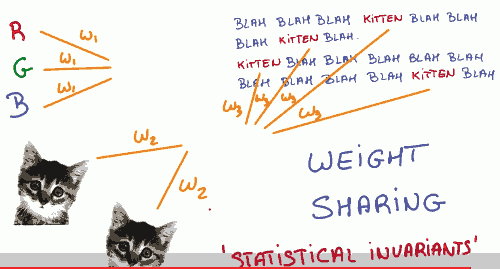 R
G
B
W1
W1
W1
BLAH BLAH BLAH KITTEN BLAH BLAH
BLAH KITTEN BLAH.
KITTEN BLAH BLAH BLAH BLAH BLAH
BLAH BLAH BLAH BLAH KITTEN BLAH
W3
W3
W3
W3
W2
W2
WEIGHT
SHARING
'STATISTICAL INVARIANTS'